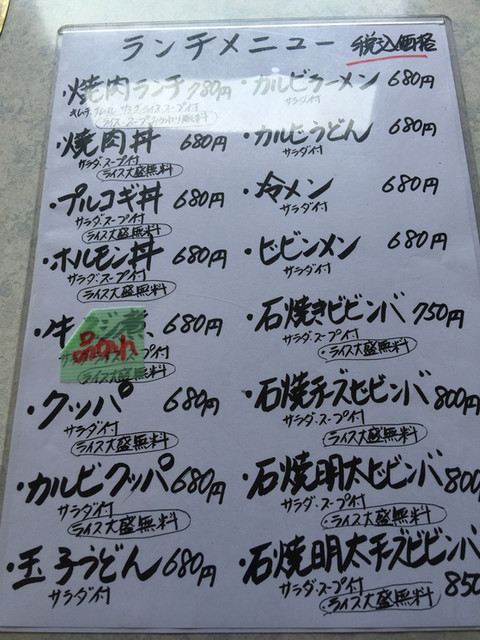 ランチメニュー 税込価格
・焼肉ランチ 780円
キムチ、ナムル、サラダ・ライス・スープ付
ライス・スープおかわり無料
・焼肉丼 680円
サラダ・スープ付
ライス大盛無料
・プルコギ丼 680円
サラダ・スープ付
ライス大盛無料
・ホルモン丼 680円
サラダ・スープ付
ライス大盛無料
・牛 ジ煮 680円
品切れ
ライス大盛無料
・クッパ 680円
サラダ付
ライス大盛無料
・カルビクッパ 680円
サラダ付
ライス大盛無料
・玉子うどん 680円
サラダ付
・カルビラーメン 680円
サラダ付
・カルビうどん 680円
サラダ付
・冷メン 680円
サラダ付
・ビビンメン 680円
サラダ付
・石焼きビビンバ 750円
サラダ・スープ付
・ライス大盛無料
・石焼チーズビビンバ 800円
サラダ・スープ付
ライス大盛無料
・石焼明太ビビンバ 800
サラダ・スープ付
・ライス大盛無料
・石焼明太チーズビビンバ
850
サラダ・スープ付
・ライス大盛無料